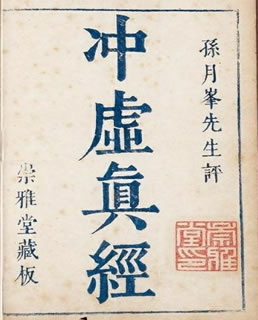 孫月峯先生評
冲虛眞經
崇雅堂藏板
崇雅堂印